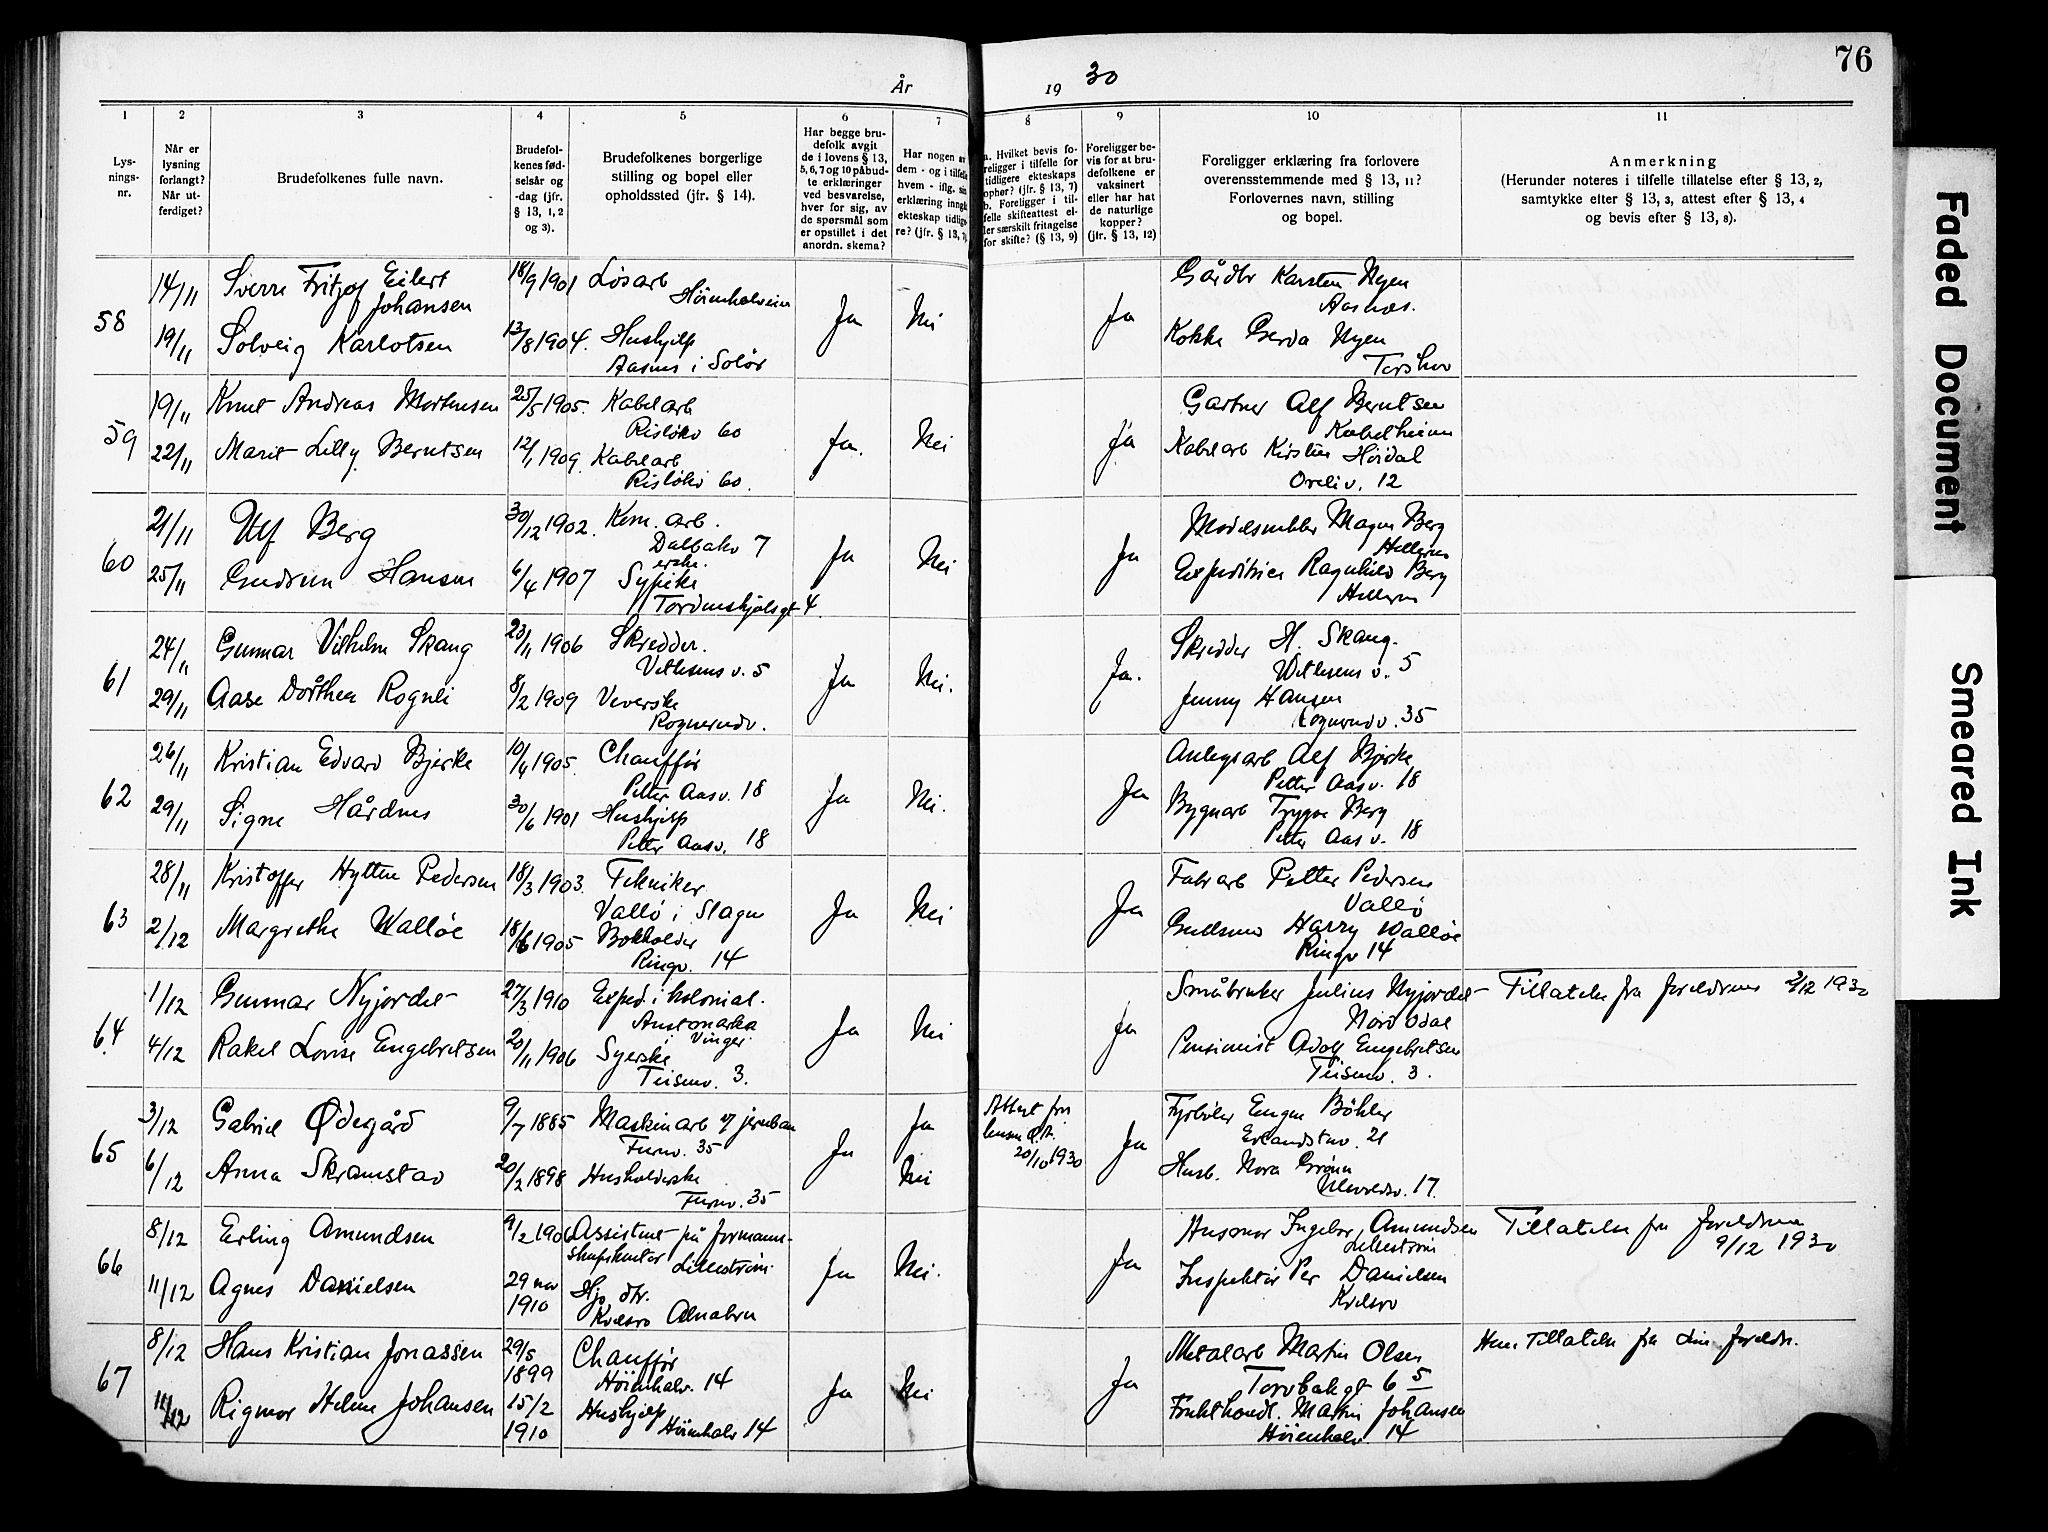 76
År 1930
1
Lys-
nings-
nr.
2
Når er
lysning
forlangt?
Når ut-
ferdiget?
3
Brudefolkenes fulle navn.
4
Brudefol-
kenes fød-
selsår og
-dag (jfr.
§ 13, 1, 2
og 3).
5
Brudefolkenes borgerlige
stilling og bopel eller
opholdssted (jfr. § 14).
6
Har begge bru-
defolk avgit
de i lovens § 13,
5, 6, 7 og 10 påbud-
te erklæringer
ved besvarelse,
hver for sig, av
de spørsmål som
er opstillet i det
anordn. skema?
7
Har nogen av
dem - og i tilfelle
hvem - iflg. sin
erklæring inngått
ekteskap tidlige-
re? (jfr. § 13, 7)
8
a. Hvilket bevis fo-
religger i tilfelle for
tidligere ekteskaps
ophør? (jfr. § 13, 7)
b. Foreligger i til-
felle skifteattest el-
ler særskilt fritagelse
for skifte? (§ 13, 9)
9
Foreligger be-
vis for at bru-
defolkene er
vaksinert
eller har hat
de naturlige
kopper?
(jfr. § 13, 12)
10
Foreligger erklæring fra forlovere
overensstemmende med § 13, 11?
Forlovernes navn, stilling
og bopel.
11
Anmerkning
(Herunder noteres i tilfelle tillatelse efter § 13, 2,
samtykke efter § 13, 3, attest efter § 13, 4
og bevis efter § 13, 8).
58
14/11
19/11
Sverre Fritjof Eilert
Johansen
Solveig Karlotsen
18/9 1901
13/8 1904.
Løsarb
Høienhalveien
Hushjelp
Aasnes i Solør
Ja
Nei
Ja
Gårdbr Karsten Nyen
Aasnes.
Kokke Gerda Nyen
Torshov
59
19/11
22/11
Knut Andreas Mortensen
Marit Lilly Berntsen
25/5 1905.
12/1 1909.
Kabelarb
Risløkv 60
Kabelarb
Risløkv 60.
Ja.
Nei
Ja
Gartner Alf Berntsen
Kabelheimen
Kabelarb Kirsten Høidal
Oreliv. 12
60
21/11
25/11
Ulf Berg
Gudrun Hansen
30/12 1902.
6/4 1907
Kem. arb.
Dalbakv 7
erske.
Sypike
Tordenskjolsgt 4.
Ja
Nei
Ja
Modelsnekker Magne Berg
Hellerud
Expeditrice Ragnhild Berg
Hellerud
61
24/11
29/11
Gunnar Vilhelm Skaug
Aase Dorthea Rognli
23/11 1906
8/2 1909
Skredder.
v. 5
Veverske
Rognerudv.
Ja
Nei.
Ja.
Skredder H. Skaug.
v. 5
Jenny Hansen
Rognerudv. 35
62
26/11
29/11
Kristian Edvard Bjerke
Signe Hårdnes
10/4 1905.
30/6 1901
Chauffør
Petter Aasv. 18
Hushjelp
Petter Aasv. 18
Ja
Nei.
Ja
Anlegsarb Alf Bjerke
Petter Aasv. 18
Bygnarb Trygve Berg
Petter Aas v. 18
63
28/11
2/12
Kristoffer Hytten Pedersen
Margrethe Walløe
18/3 1903.
18/6 1905
Tekniker
Vallø i Slagen
Bokholder
Ringv. 14
Ja
Nei
Ja
Fabrarb Petter Pedersen
Vallø
Gullsmed Harry Walløe
Ringv 14
64
1/12
4/12
Gunnar Nyjordet
Rakel Lovise Engebretsen
27/3 1910
20/11 1906
Exped. i kolonial.
Austmarka
Vinger.
Syerske
Teisenv. 3.
Ja
Nei
Ja
Småbruker Julius Nyjordet
Nord Odal
Pensionist Adolf Engebretsen
Teisenv. 3.
Tillatelse fra foreldrene 2/12 1930
65
3/12
6/12
Gabriel Ødegård
Anna Skramstad
9/7 1885
20/2 1898
Maskinarb v/ jernban
Furuv. 35
Husholderske
Furuv. 35
Ja
Ja
Nei
Attest fra
20/10 1930
Ja
Fyrbøter Eugen Böhler
21
Husb. Nora Grønn
Ullevoldsv. 17.
66
8/12
11/12
Erling Amundsen
Agnes Danielsen
9/2 1906
29 nov
1910
Assistent på formann-
skapskontor Lillestrøm.
Hjv. dtr.
Kvelsro Alnabru
Ja
Nei.
Ja
Husmor Ingeborg Amundsen
Lillestrøm
Inspektør Per Danielsen
Kvelsro
Tillatelse fra foreldrene
9/12 1930
67
8/12
11/12
Hans Kristian Jonassen
Rigmor Helene Johansen
29/5
1899
15/2
1910
Chauffør
Høienhalv. 14
Hushjelp
Høienhalv 14
Ja
Nei
Ja
Metalarb Martin Olsen
Torvbakgt 6 5
Frukthandl. Martin Johansen
Høienhalv. 14
Hun Tillatelse fra sine foreldre.
Faded Document
Smeared Ink